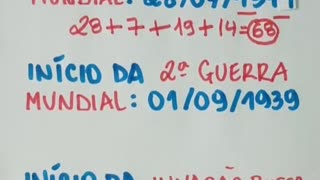 MUNDIAL: 28/07/1914
28+7+19+14=68
INÍCIO DA 2ª GUERRA
MUNDIAL: 01/09/1939
INÍCIO DA INVASÃO RUSSA